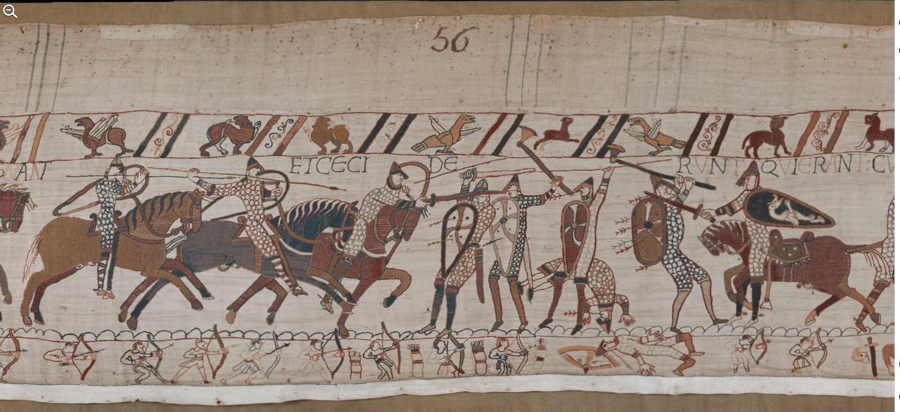 56
ANT ET CECI DE RVNT QVI ERANT CV